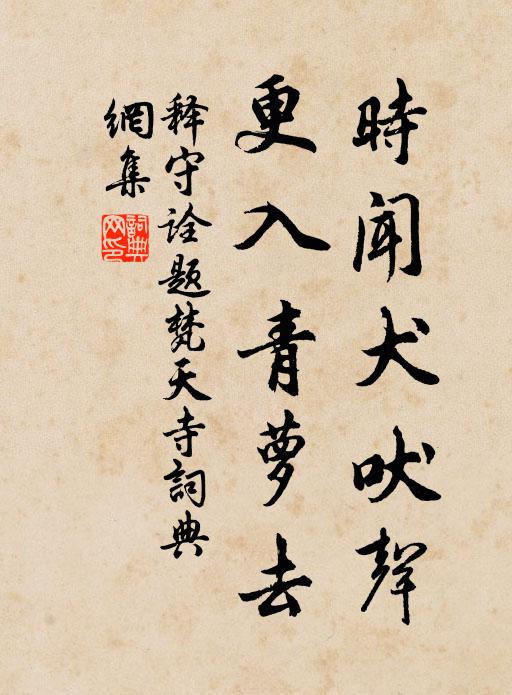 時聞犬吠聲
更入青蘿去
释守诠题梵天寺詞典
網集
詞典
网印